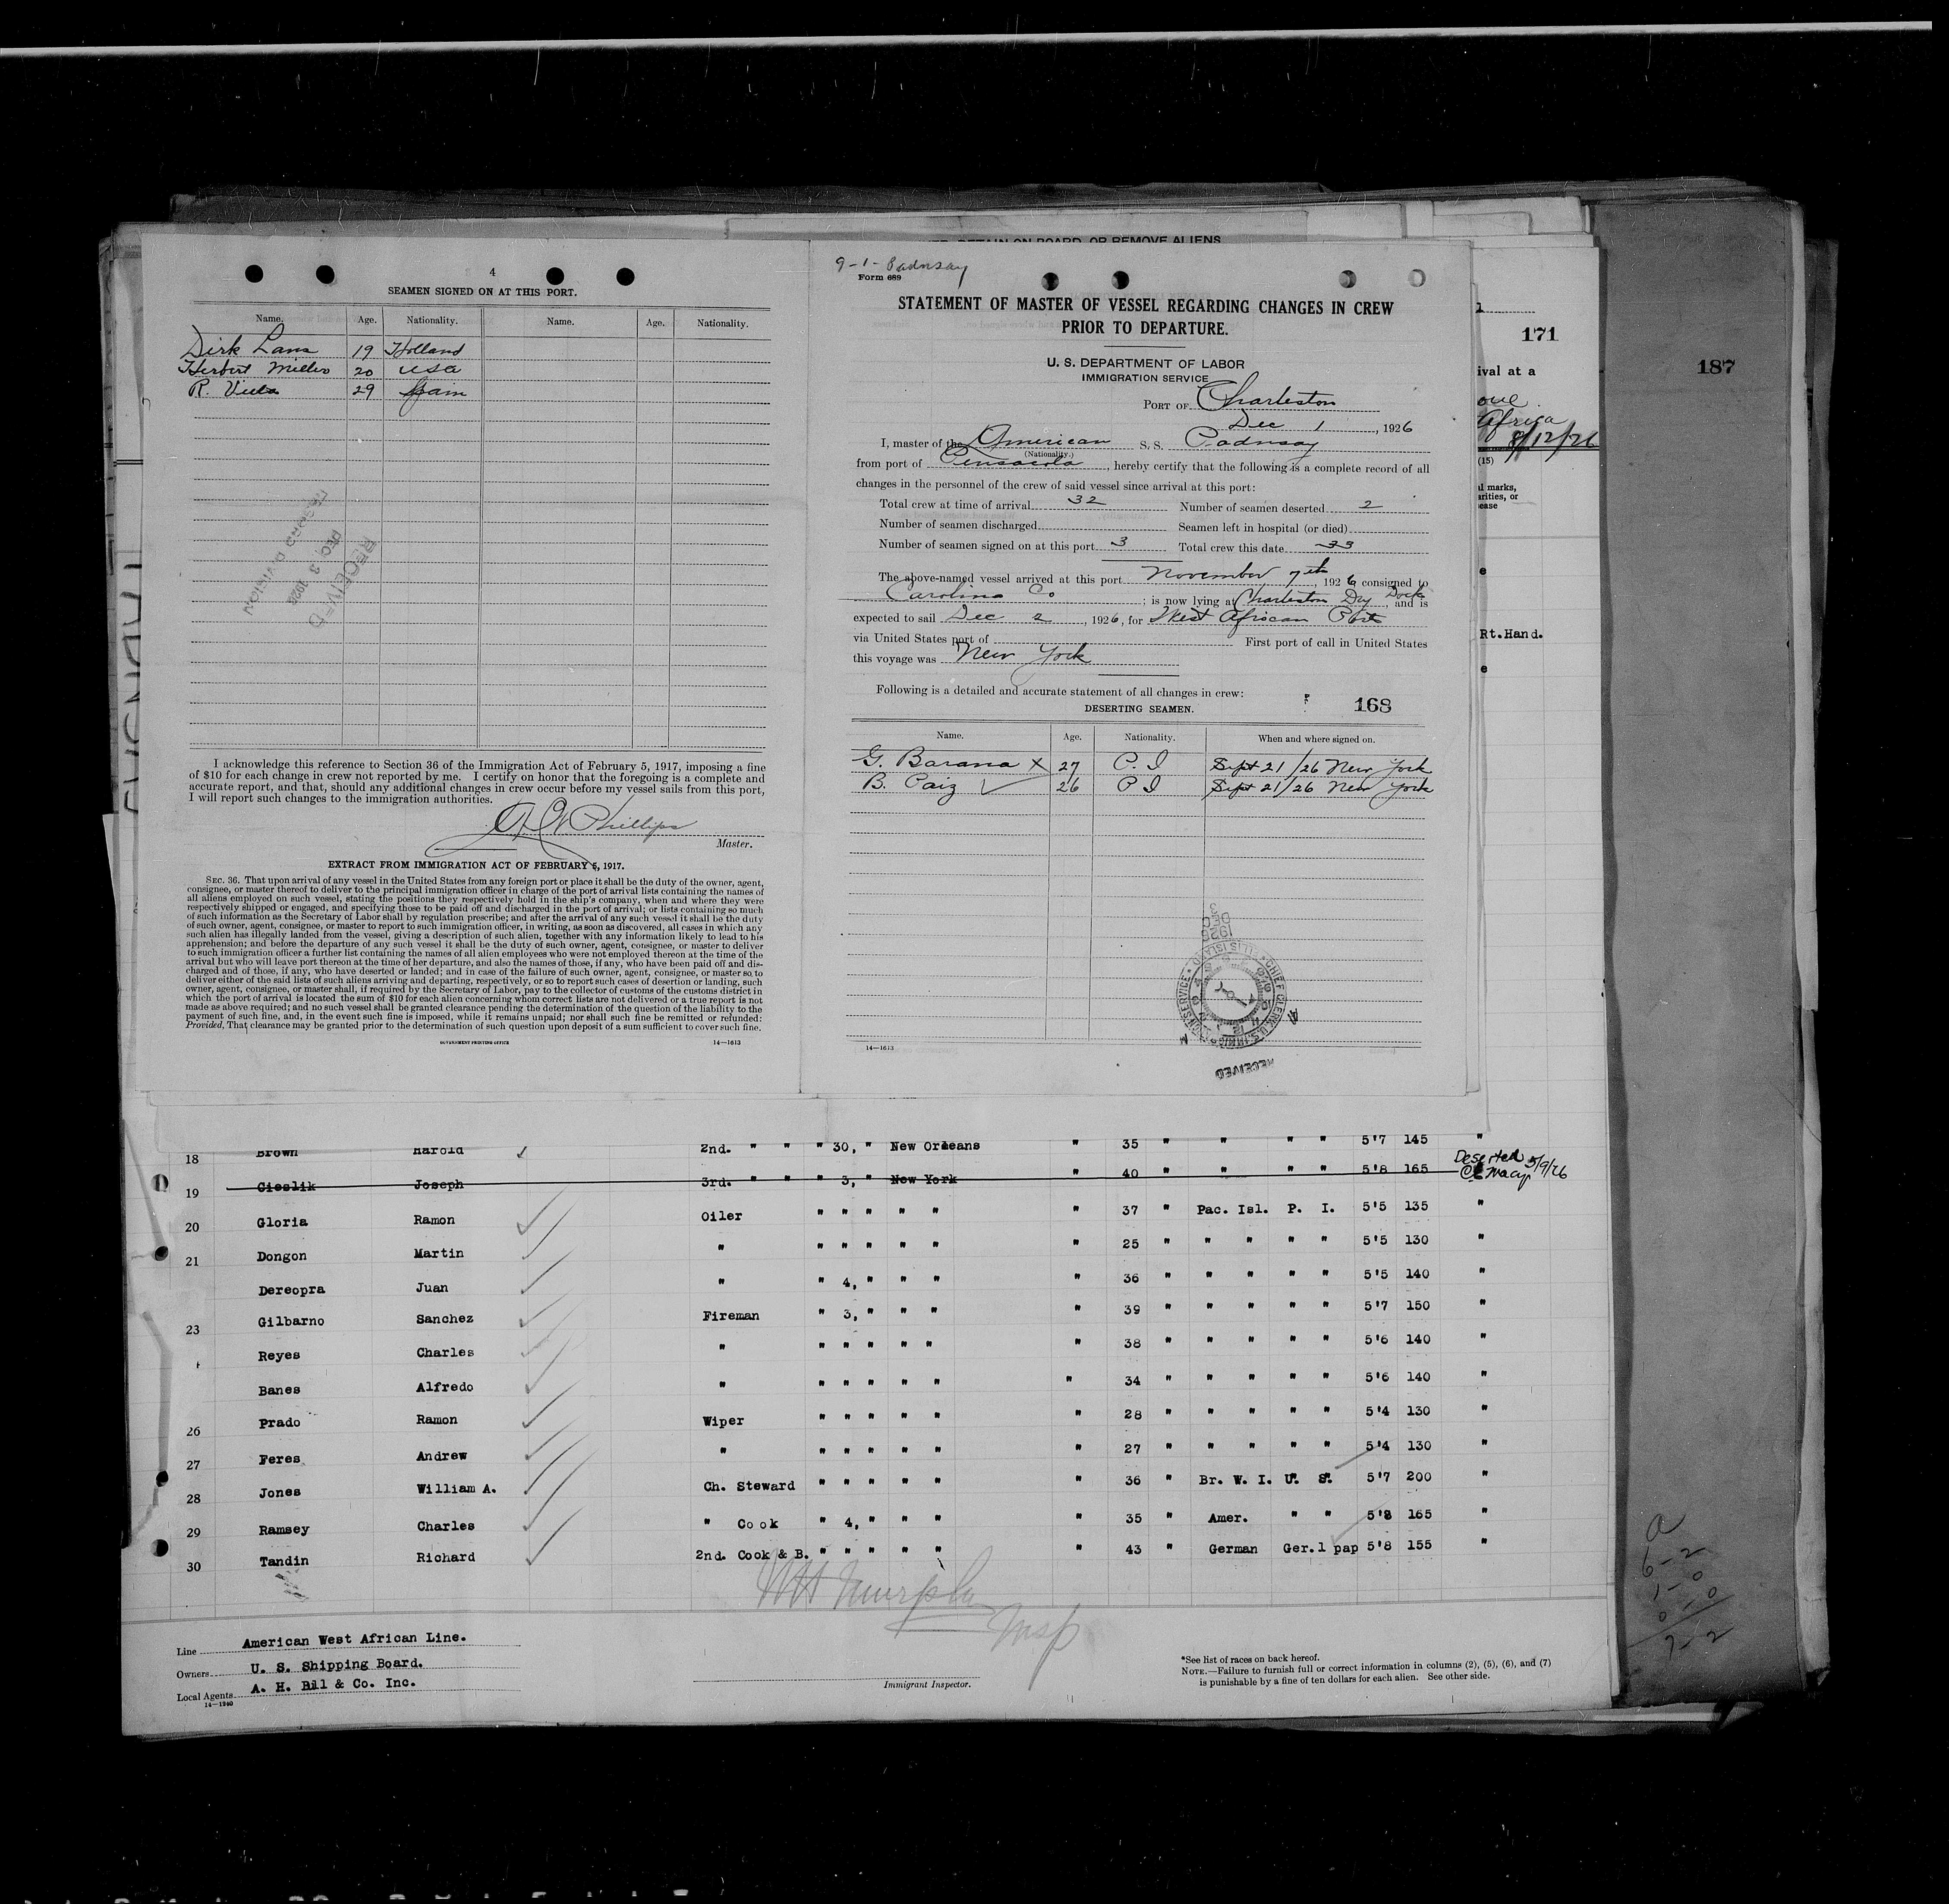 4
SEAMEN SIGNED ON AT THIS PORT.
Name. Age. Nationality. Name. Age. Nationality.
Dirk Lans 19 Holland
Herbert 20 USA
R. 29 Spain
RECEIVED
DEC 3 1926
DIVISION
I acknowledge this reference to Section 36 of the Immigration Act of February 5, 1917, imposing a fine
of $10 for each change in crew not reported by me. I certify on honor that the foregoing is a complete and
accurate report, and that, should any additional changes in crew occur before my vessel sails from this port,
I will report such changes to the immigration authorities.
Phillips
Master.
EXTRACT FROM IMMIGRATION ACT OF FEBRUARY 5, 1917.
SEC. 36. That upon arrival of any vessel in the United States from any foreign port or place it shall be the duty of the owner, agent,
consignee, or master thereof to deliver to the principal immigration officer in charge of the port of arrival lists containing the names of
all aliens employed on such vessel, stating the positions they respectively hold in the ship's company, when and where they were
respectively shipped or engaged, and specifying those to be paid off and discharged in the port of arrival; or lists containing so much
of such information as the Secretary of Labor shall by regulation prescribe; and after the arrival of any such vessel it shall be the duty
of such owner, agent, consignee, or master to report to such immigration officer, in writing, as soon as discovered, all cases in which any
such alien has illegally landed from the vessel, giving a description of such alien, together with any information likely to lead to his
apprehension; and before the departure of any such vessel it shall be the duty of such owner, agent, consignee, or master to deliver
to such immigration officer a further list containing the names of all alien employees who were not employed thereon at the time of the
arrival but who will leave port thereon at the time of her departure, and also the names of those, if any, who have been paid off and dis-
charged and of those, if any, who have deserted or landed; and in case of the failure of such owner, agent, consignee, or master so to
deliver either of the said lists of such aliens arriving and departing, respectively, or so to report such cases of desertion or landing, such
owner, agent, consignee, or master shall, if required by the Secretary of Labor, pay to the collector of customs of the customs district in
which the port of arrival is located the sum of $10 for each alien concerning whom correct lists are not delivered or a true report is not
made as above required; and no such vessel shall be granted clearance pending the determination of the question of the liability to the
payment of such fine, and, in the event such fine is imposed, while it remains unpaid; nor shall such fine be remitted or refunded:
Provided, That clearance may be granted prior to the determination of such question upon deposit of a sum sufficient to cover such fine.
GOVERNMENT PRINTING OFFICE 14—1613
DETAIN ON BOARD, OR REMOVE ALIENS
9-1-Padnsay
Form 689
STATEMENT OF MASTER OF VESSEL REGARDING CHANGES IN CREW
PRIOR TO DEPARTURE.
U. S. DEPARTMENT OF LABOR
IMMIGRATION SERVICE
PORT OF Charleston
Dec 1, 1926
I, master of the American S. S. Padnsay
(Nationality.)
from port of Pensacola, hereby certify that the following is a complete record of all
changes in the personnel of the crew of said vessel since arrival at this port:
Total crew at time of arrival 32 Number of seamen deserted 2
Number of seamen discharged Seamen left in hospital (or died)
Number of seamen signed on at this port 3 Total crew this date 33
The above-named vessel arrived at this port November 7th, 1926 consigned to
Carolina Co; is now lying at Charleston Dry Dock, and is
expected to sail Dec 2, 1926, for West African Ports
via United States port of First port of call in United States
this voyage was New York
Following is a detailed and accurate statement of all changes in crew:
DESERTING SEAMEN. 168
Name. Age. Nationality. When and where signed on.
G. Barana X 27 P. I Sept 21/26 New York
B. Paiz ✓ 26 P I Sept 21/26 New York
1926
DEC
3
CHIEF CLERK, U.S. IMMIGRATION SERVICE ELLIS ISLAND
RECEIVED
14—1613
171
ival at a
Africa
8/12/26
(15)
l marks,
arities, or
ease
e
Rt.Hand.
e
187
18 Brown Harold ✓ 2nd. " " " 30, " New Orleans " 35 " " " " 5'7 145 "
19 Cieslik Joseph 3rd. " " " 3, " New York " 40 " " " " 5'8 165 Deserted 5/9/26
20 Gloria Ramon Oiler " " " " " " 37 " Pac. Isl. P. I. 5'5 135 "
21 Dongon Martin " " " " " " " 25 " " " " " 5'5 130 "
Dereopra Juan " " 4, " " " " 36 " " " " " 5'5 140 "
23 Gilbarno Sanchez Fireman " 3, " " " " 39 " " " " " 5'7 150 "
Reyes Charles " " " " " " " 38 " " " " " 5'6 140 "
Banes Alfredo " " " " " " " 34 " " " " " 5'6 140 "
26 Prado Ramon Wiper " " " " " " 28 " " " " " 5'4 130 "
27 Feres Andrew " " " " " " " 27 " " " " " 5'4 130 "
28 Jones William A. Ch. Steward " " " " " " 36 " Br. W. I. U. S. 5'7 200 "
29 Ramsey Charles " Cook " 4, " " " " 35 " Amer. " " 5'8 165 "
30 Tandin Richard 2nd. Cook & B. " " " " " " 43 " German Ger.1 pap 5'8 155 "
Line American West African Line.
Owners U. S. Shipping Board.
Local Agents A. H. Bull & Co. Inc.
14—1240
Immigrant Inspector.
*See list of races on back hereof.
NOTE.—Failure to furnish full or correct information in columns (2), (5), (6), and (7)
is punishable by a fine of ten dollars for each alien. See other side.
a
6-2
1-0
0-0
7-2